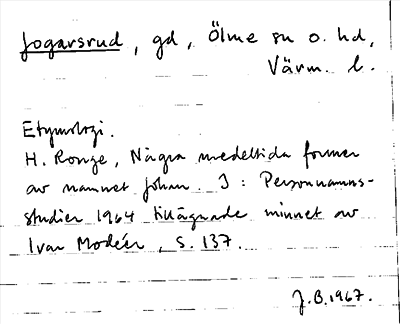 Jogarsrud, gd, Ölme sn o. hd,
Värm. l.
Etymologi.
H. Ronge, Några medeltida former
av namnet Johan. I: Personnamns-
studier 1964 tillägnade minnet av
Ivar Modéer, s. 137.
J.B.1967.